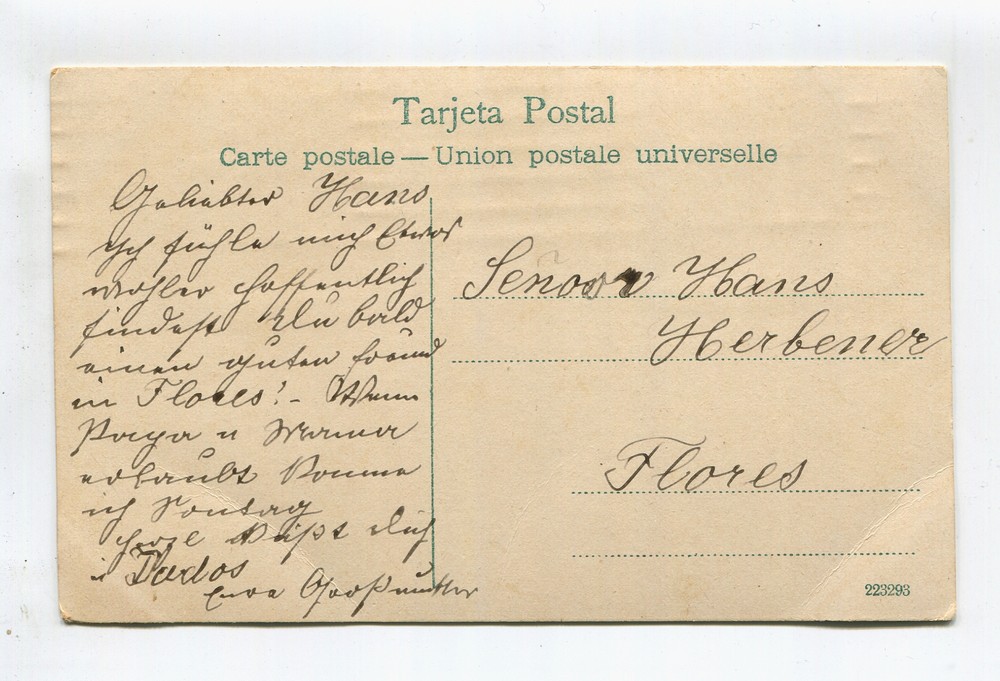 Tarjeta Postal
Carte postale — Union postale universelle
Geliebter Hans
Ich fühle mich Etwas
wohler hoffentlich
findest Du bald
einen guten freund
in Flores! - Wenn
Papa u Mama
erlaubt komme
ich Sontag
küßt dich
Eure Großmutter
Senor Hans
Herbener
Flores
223293